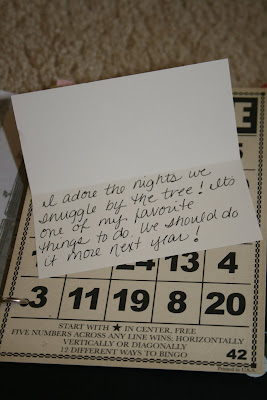 E
I adore the nights we
snuggle by the tree! It's
one of my favorite
things to do. We should do
it more next year!
24 13 4
3 11 19 8 20
START WITH ★ IN CENTER, FREE
FIVE NUMBERS ACROSS ANY LINE WINS; HORIZONTALLY
VERTICALLY OR DIAGONALLY
12 DIFFERENT WAYS TO BINGO
42